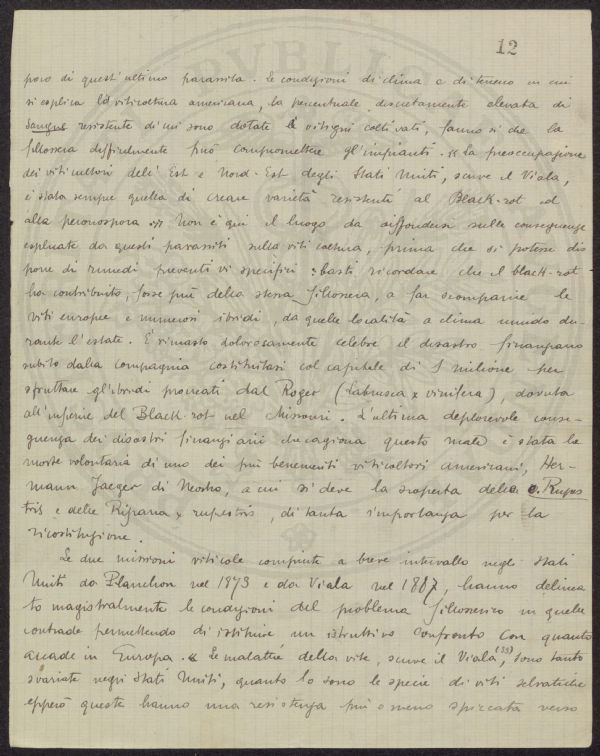 12
poro di quest'ultimo parassita. Le condizioni di clima e di terreno in cui
si esplica la viticoltura americana, la percentuale discretamente elevata di
sangue resistente di cui sono dotate i vitigni coltivati, fanno si che la
fillossera difficilmente può compromettere gl'impianti. "La preoccupazione
dei viticultori dell'Est e Nord-Est degli Stati Uniti, scrive il Viala,
è stata sempre quella di creare varietà resistenti al Black-rot ed
alla peronospora". Non è qui il luogo da diffondersi sulle conseguenze
esplicate da questi parassiti sulla viticoltura, prima che si potesse dis
porre di rimedi preventivi specifici: basti ricordare che il black-rot
ha contribuito, forse più della stessa fillossera, a far scomparire le
viti europee e numerosi ibridi, da quelle località a clima umido du-
rante l'estate. È rimasto dolorosamente celebre il disastro finanziario
subito dalla compagnia costituitasi col capitale di 1 milione per
sfruttare gl'ibridi procreati dal Roger (Labrusca x vinifera), dovuta
all'infierire del Black-rot nel Missouri. L'ultima deplorevole conse-
guenza dei disastri finanziarii che cagiona questo male è stata la
morte volontaria di uno dei più benemeriti viticoltori americani, Her-
mann Jaeger di Neosho, a cui si deve la scoperta della Rupes
tris e delle Riparia x rupestris, di tanta importanza per la
ricostituzione.
Le due missioni viticole compiute a breve intervallo negli Stati
Uniti da Planchon nel 1873 e da Viala nel 1887, hanno delinea
to magistralmente le condizioni del problema fillosserico in quelle
contrade permettendo di istituire un istruttivo confronto con quanto
accade in Europa. "Le malattie della vite, scrive il Viala (33), sono tanto
svariate negri Stati Uniti, quanto lo sono le specie di viti selvatiche
epperò queste hanno una resistenza più o meno spiccata verso